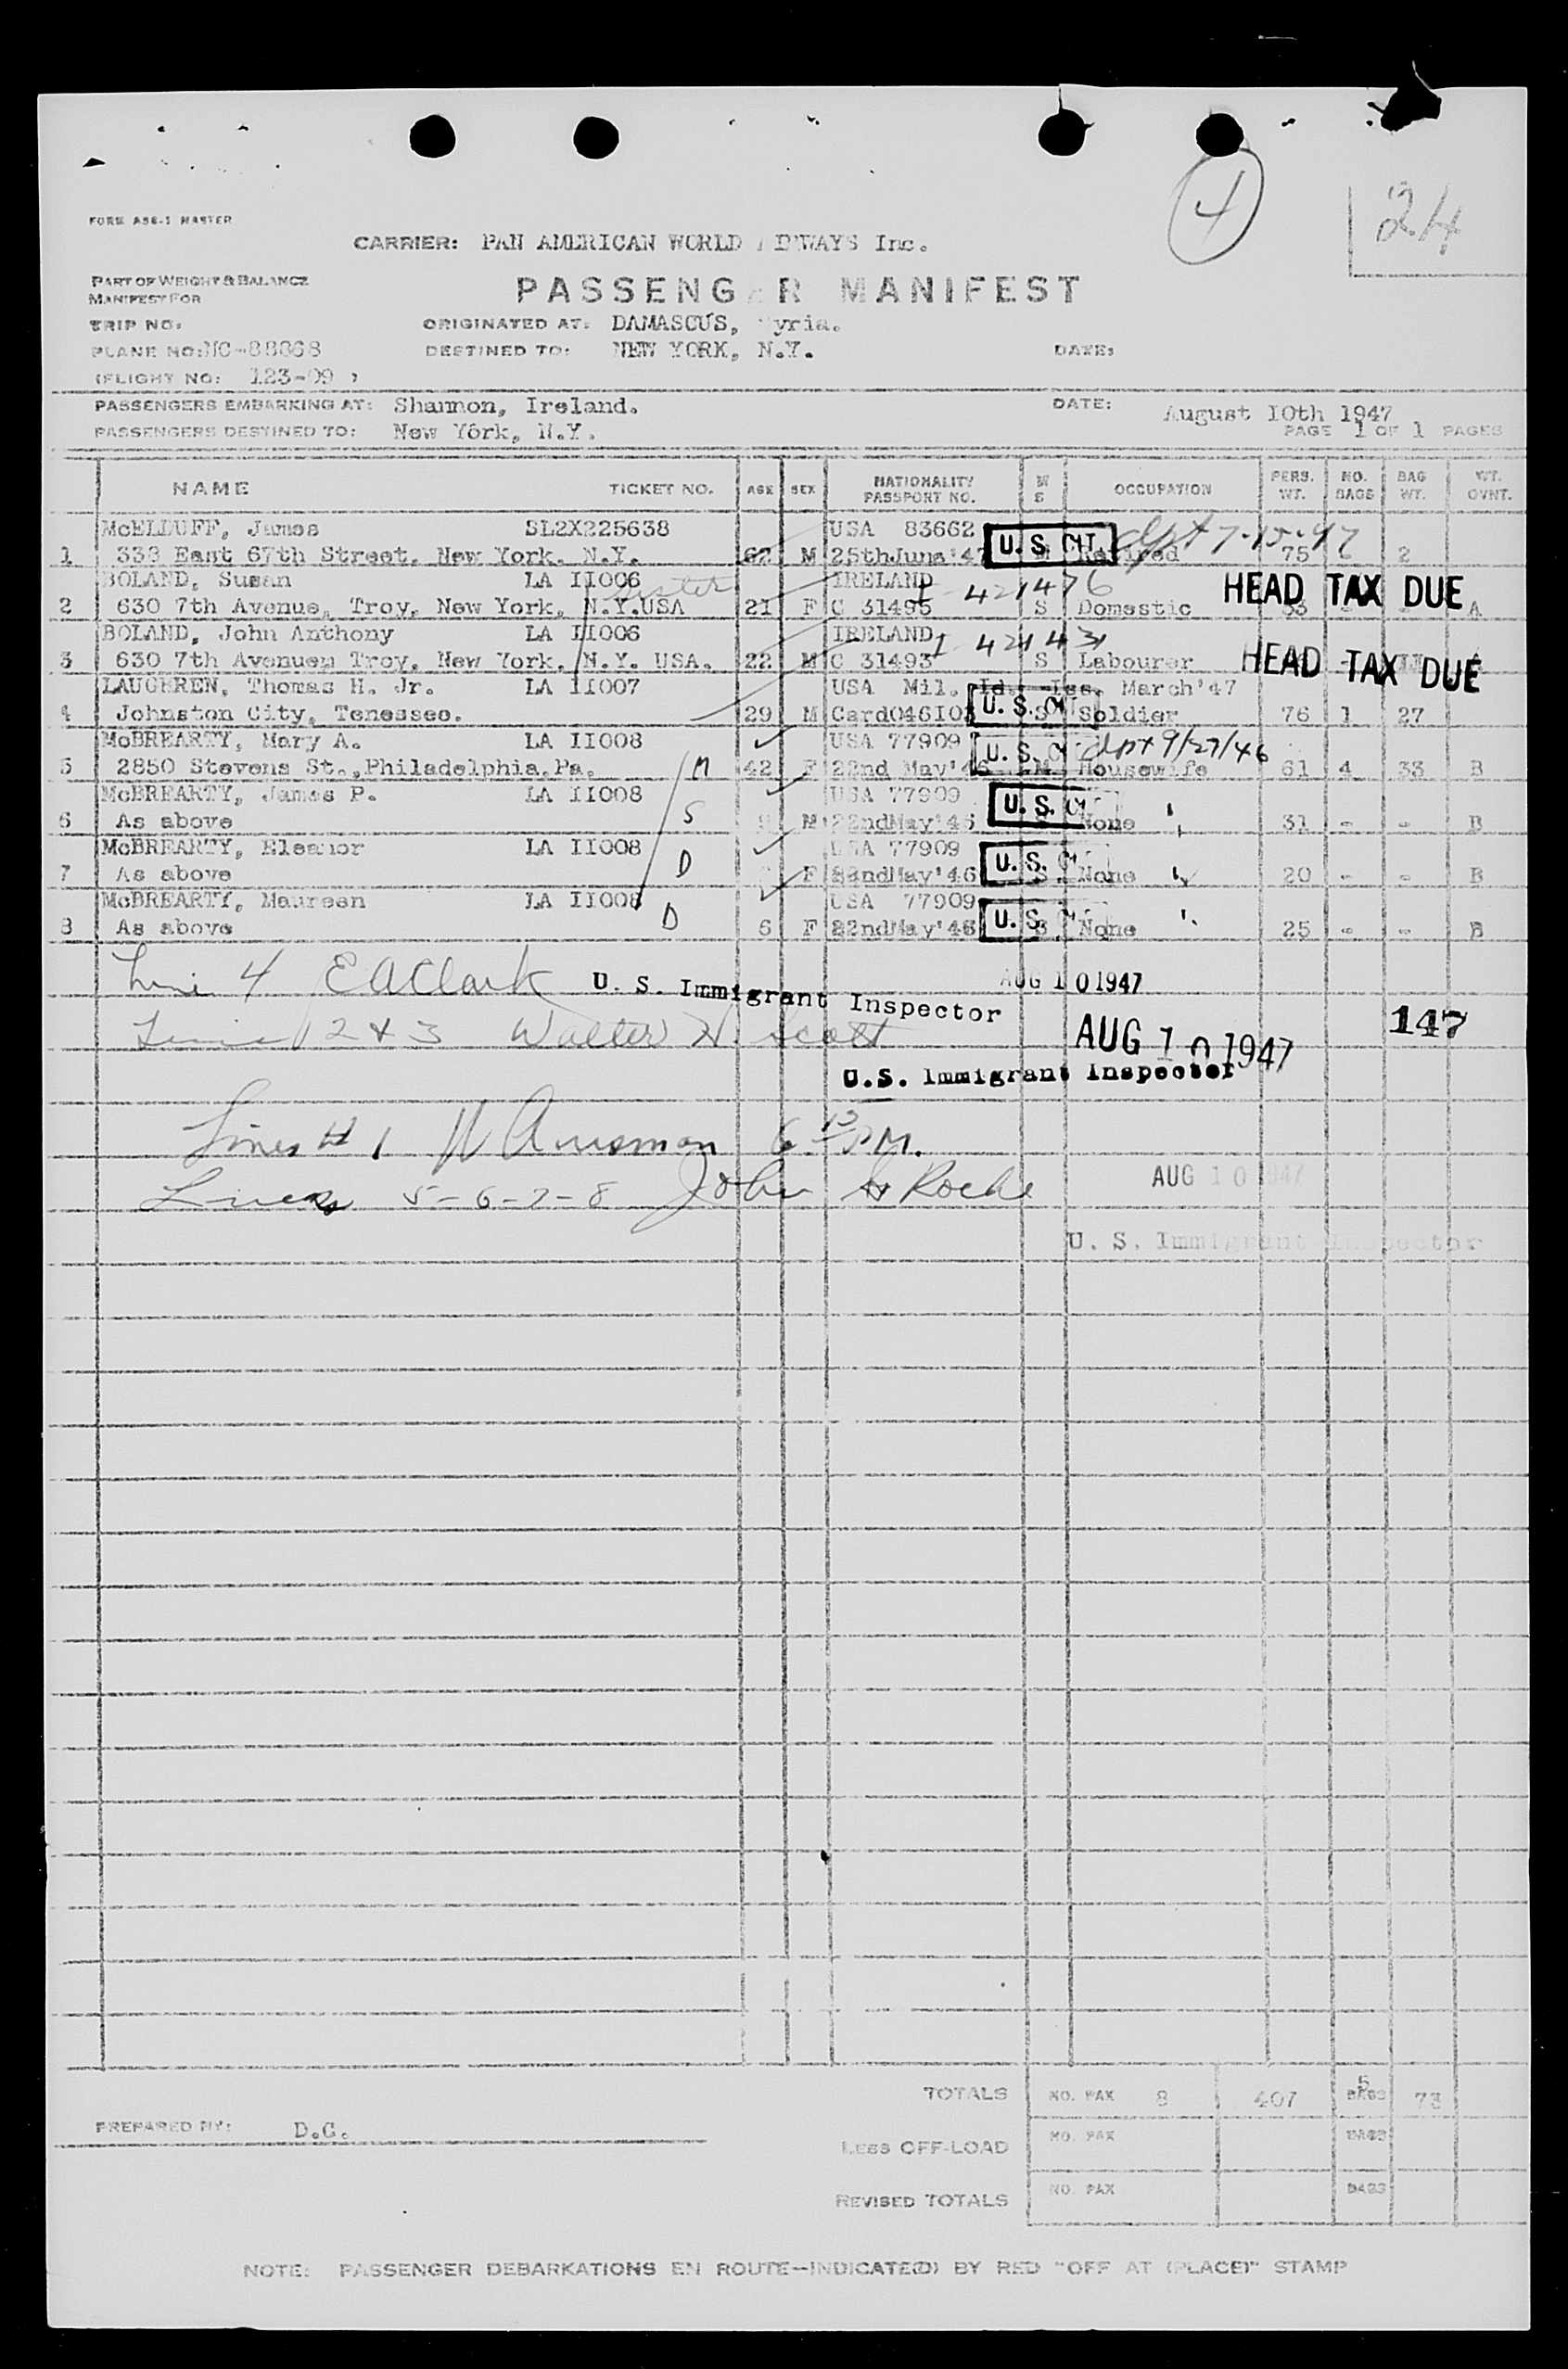 4
24
FORM A86-1 MASTER
CARRIER: PAN AMERICAN WORLD Inc.
PART OF WEIGHT & BALANCE
MANIFEST FOR
PASSENGER MANIFEST
TRIP NO:
ORIGINATED AT: DAMASCUS, yria.
PLANE NO: NC-88868
DESTINED TO: NEW YORK, N.Y.
DATE:
(FLIGHT NO: 123-09 )
PASSENGERS EMBARKING AT: Shannon, Ireland.
DATE: August 10th 1947
PASSENGERS DESTINED TO: New York, N.Y.
PAGE 1 OF 1 PAGES
NAME TICKET NO. AGE SEX NATIONALITY PASSPORT NO. M S OCCUPATION PERS. WT. NO. BAGS BAG WT. WT. OVNT.
McELDUFF, James SL2X225638 USA 83662 dpt 7-15-47
1 333 East 67th Street. New York. N.Y. 62 M 25thJune'47 U.S. CIT. Retired 75 2
BOLAND, Susan LA II006 sister IRELAND I-421476
2 630 7th Avenue, Troy, New York, N.Y.USA 21 F C 31495 S Domestic 53 HEAD TAX DUE A
BOLAND, John Anthony LA II006 IRELAND I 421431
3 630 7th Avenuem Troy. New York. N.Y. USA. 22 M C 31493 S Labourer HEAD TAX DUE
LAUGHREN, Thomas H. Jr. LA II007 USA Mil. Id. Iss. March'47
4 Johnston City, Tenessee. 29 M U.S. CIT S Soldier 76 1 27
McBREARTY, Mary A. LA II008 USA 77909 dpt 9/27/46
5 2850 Stevens St.,Philadelphia.Pa. M 42 F 22nd May'46 U.S. C M Housewife 61 4 33 B
McBREARTY, James P. LA II008 USA 77909
6 As above S M 22ndMay'46 U.S. CIT None " 31 - - B
McBREARTY, Eleanor LA II008 USA 77909
7 As above D F 22ndMay'46 U.S. CIT S None " 20 - - B
McBREARTY, Maureen LA II008 USA 77909
8 As above D 6 F 22ndMay'46 U.S. CIT S None " 25 - - B
Line 4 E A Clark U. S. Immigrant Inspector AUG 10 1947
Line 2 & 3 Walter H. Scott AUG 10 1947 147
U.S. Immigrant Inspector
Lines # 1 6 PM.
Lines 5-6-7-8 John H Roche AUG 10 1947
U. S. Immigrant Inspector
TOTALS NO. PAX 8 407 5 BAGS 73
PREPARED BY: D.G.
LESS OFF-LOAD NO. PAX BAGS
REVISED TOTALS NO. PAX BAGS
NOTE: PASSENGER DEBARKATIONS EN ROUTE—INDICATE(D) BY RED "OFF AT (PLACE)" STAMP